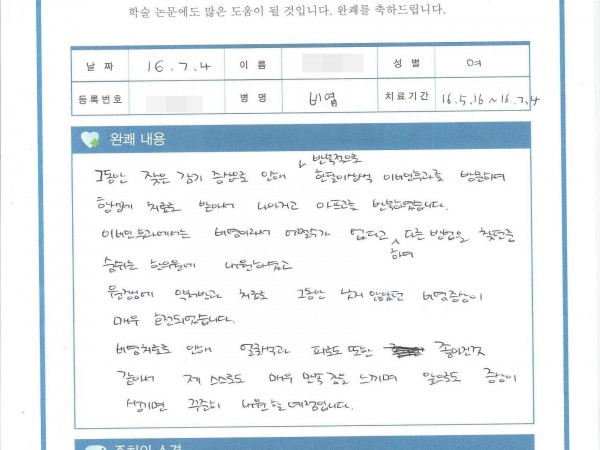 학술 논문에도 많은 도움이 될 것입니다. 완쾌를 축하드립니다.
날 짜 16. 7. 4 이 름 성 별 여
등록번호 병 명 비염 치료기간 16.5.16 ~ 16.7.4
완쾌 내용
그동안 잦은 감기 증상으로 인해 반복적으로 한달이상씩 이비인후과를 방문하며
항생제 치료로 받아서 나아지고 아프고를 반복하였습니다.
이비인후과에서는 비염이라서 어쩔수가 없다고 하여 다른 방법을 찾던중
숨쉬는 한의원에 내원하였고
원장님에 약처방과 치료로 그동안 낫지 않았던 비염증상이
매우 호전되었습니다.
비염치료로 인해 얼굴색과 피로도 또한 좋아진것
같아서 제 스스로도 매우 만족감을 느끼며 앞으로도 증상이
생기면 꾸준히 내원할 예정입니다.